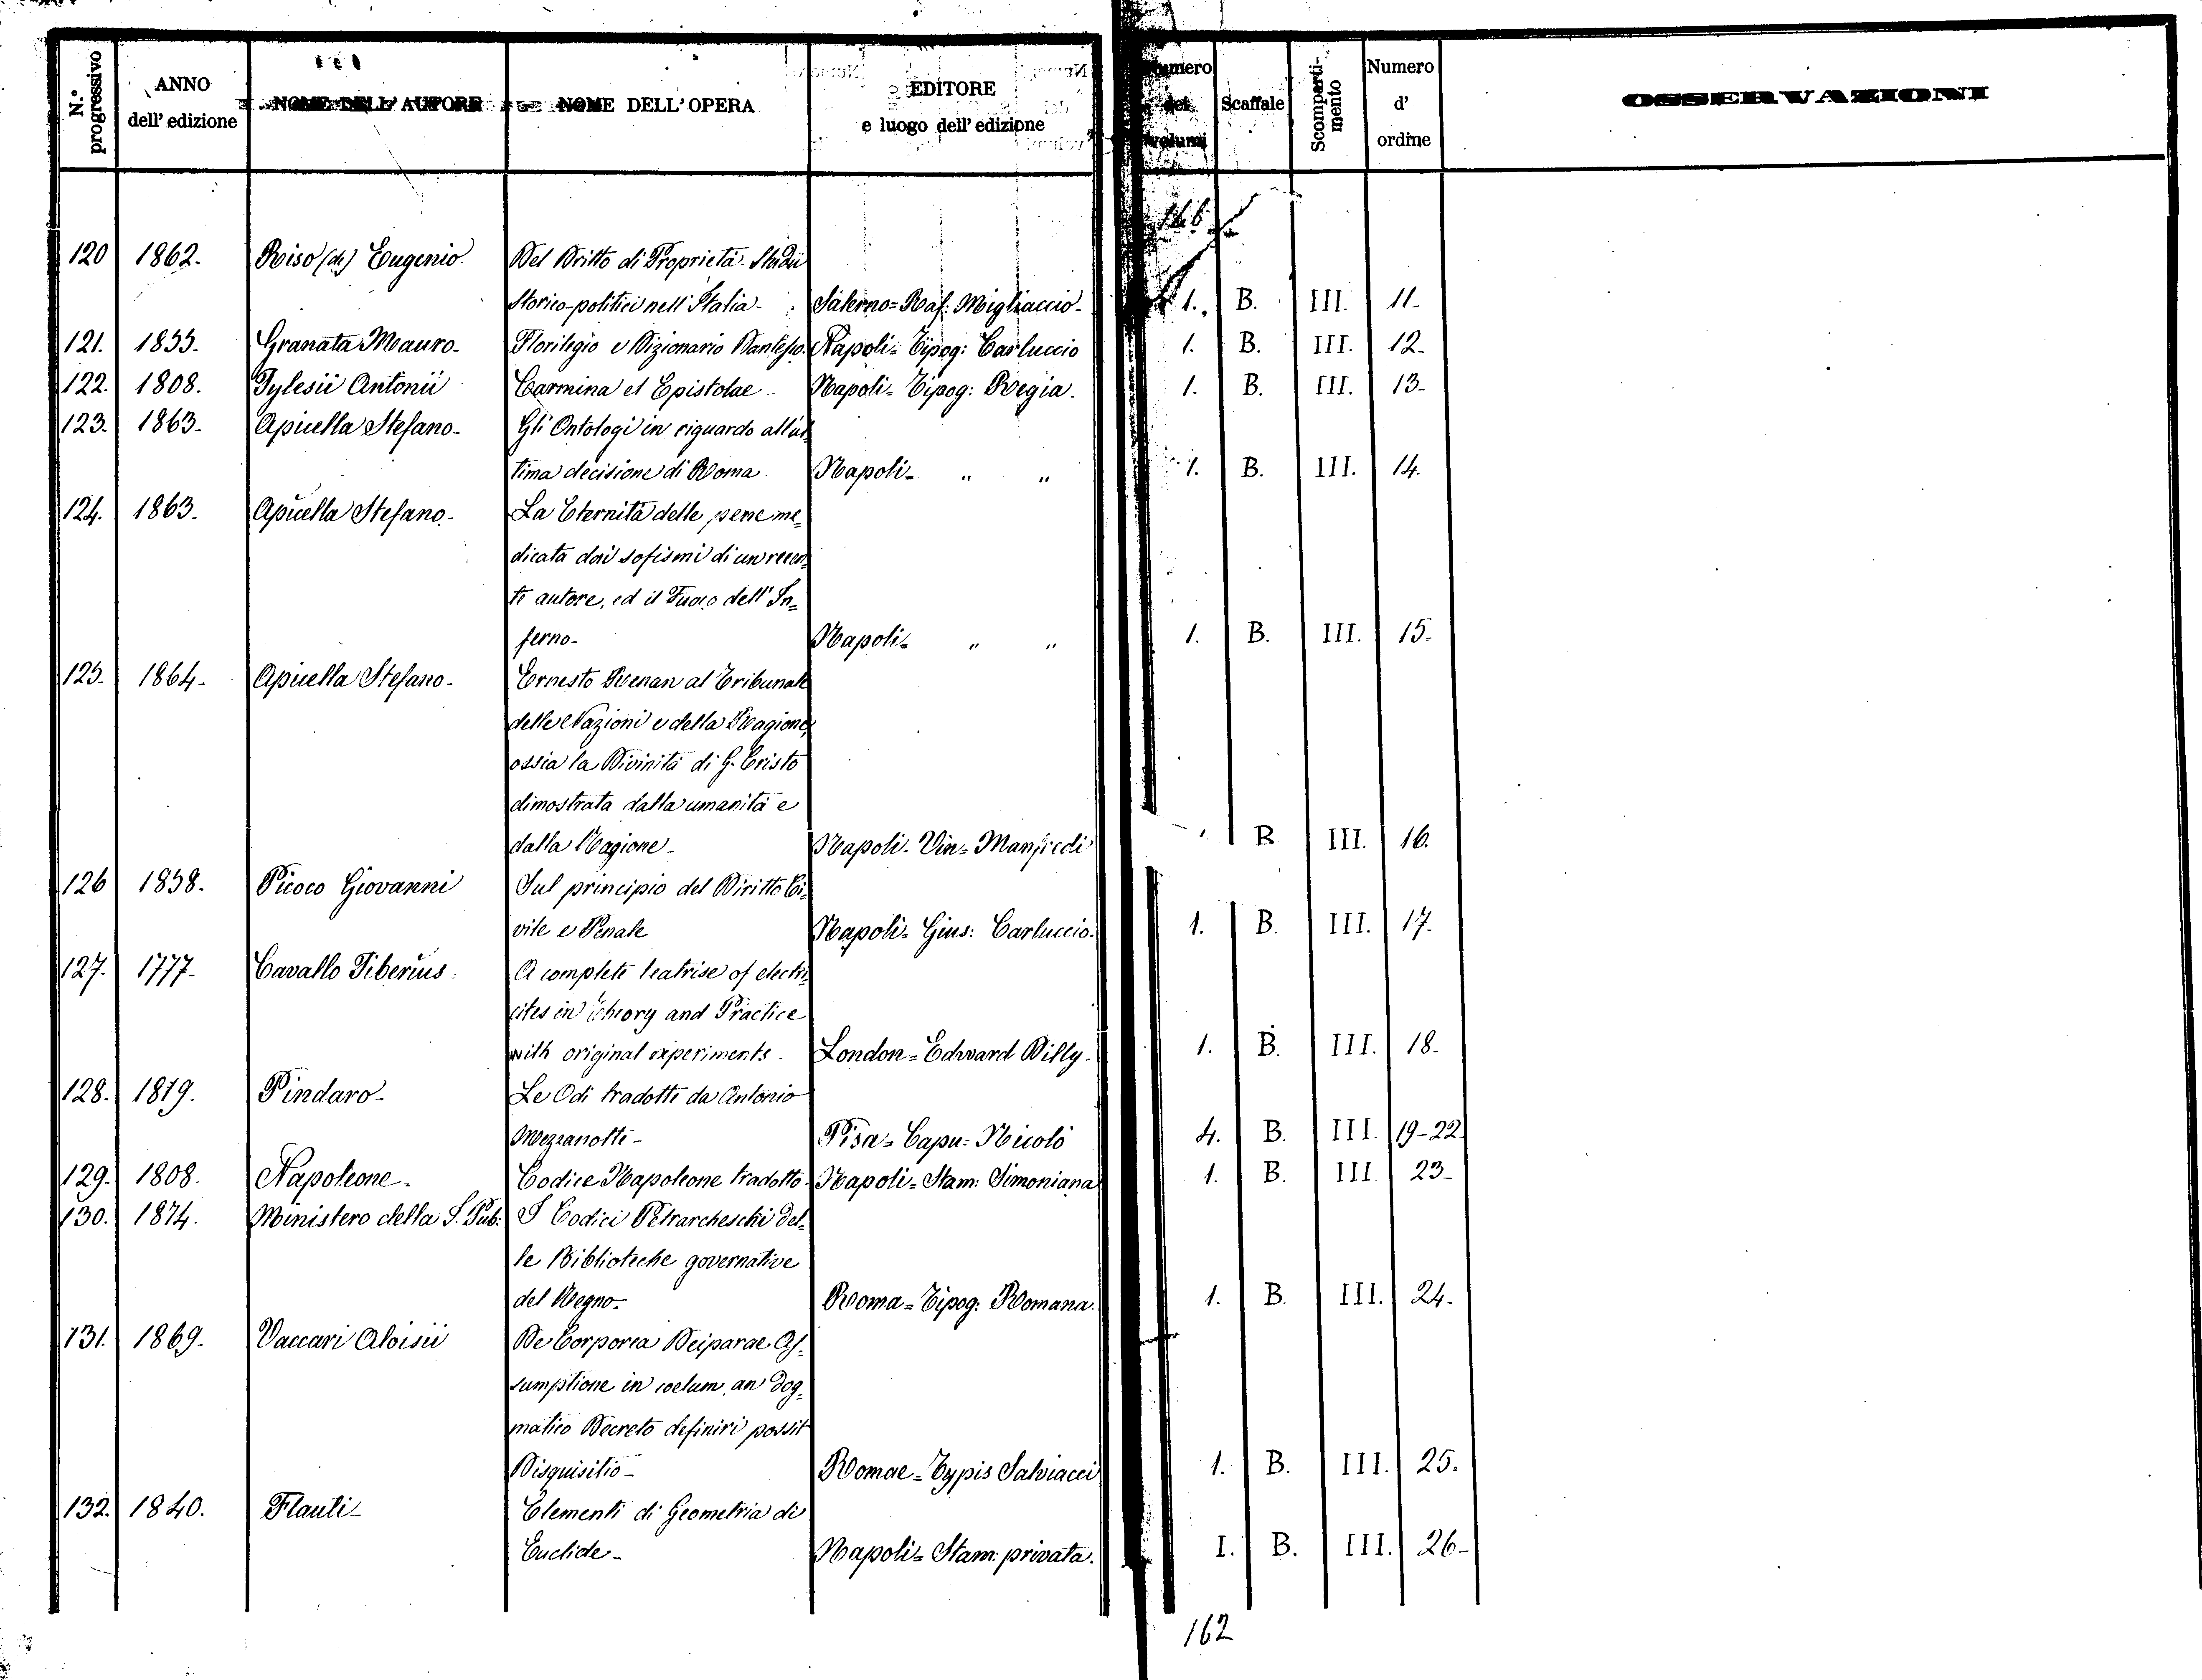 N.° progressivo
ANNO dell'edizione
NOME DELL'AUTORE
NOME DELL'OPERA
EDITORE e luogo dell'edizione
Numero dei volumi
Scaffale
Scomparti-mento
Numero d'ordine
OSSERVAZIONI
146
120 1862. Riso (de) Eugenio. Del Dritto di Proprietà. Studii
Storico-politici nell'Italia. Salerno = Raf: Migliaccio 1. B. III. 11.
121. 1855. Granata Mauro. Florilegio e Dizionario Dantesco. Napoli = Tipog: Carluccio 1. B. III. 12.
122. 1808. Tylesii Antonii Carmina et Epistolae Napoli = Tipog: Regia. 1. B. III. 13.
123. 1863. Apicella Stefano. Gli Ontologi in riguardo all'ul=
tima decisione di Roma. Napoli = " " 1. B. III. 14.
124. 1863. Apicella Stefano. La Eternità delle pene me=
dicata dai sofismi di un recen=
te autore, ed il Fuoco dell'In=
ferno. Napoli = " " 1. B. III. 15.
125. 1864. Apicella Stefano. Ernesto Renan al Tribunale
delle Nazioni e della Ragione,
ossia la Divinità di G. Cristo
dimostrata dalla umanità e
dalla Ragione. Napoli. Vin = Manfredi B III. 16.
126 1858. Picoco Giovanni Sul principio del Diritto Ci=
vile e Penale Napoli = Gius: Carluccio. 1. B. III. 17.
127. 1777. Cavallo Tiberius. A complete teatrise of electri=
cites in theory and Practice
with original experiments. London = Edward Dilly. 1. B. III. 18.
128. 1819. Pindaro. Le Odi tradotte da Antonio
Mezzanotte. Pisa = Capu = Nicolò 4. B. III. 19-22.
129. 1808. Napoleone. Codice Napoleone tradotto. Napoli = Stam: Simoniana 1. B. III. 23.
130. 1874. Ministero della I. Pub: I Codici Petrarcheschi del=
le Biblioteche governative
del Regno. Roma = Tipog: Romana. 1. B. III. 24.
131. 1869. Vaccari Aloisii De Corporea Deiparae As=
sumptione in coelum, an dog=
matico Decreto definiri possit
Disquisitio. Romae = Typis Salviacci 1. B. III. 25.
132. 1840. Flauti. Elementi di Geometria di
Euclide. Napoli = Stam: privata. I. B. III. 26.
162